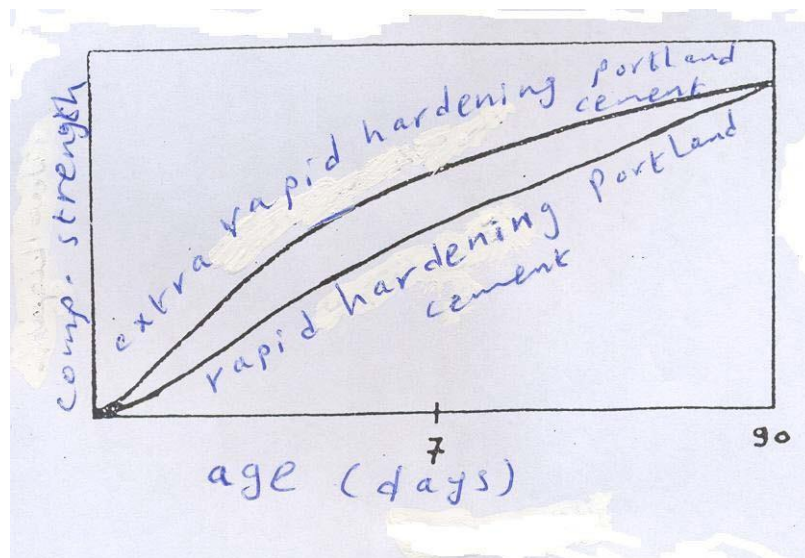 comp. strength
extra rapid hardening portland
cement
rapid hardening portland
cement
7
90
age (days)